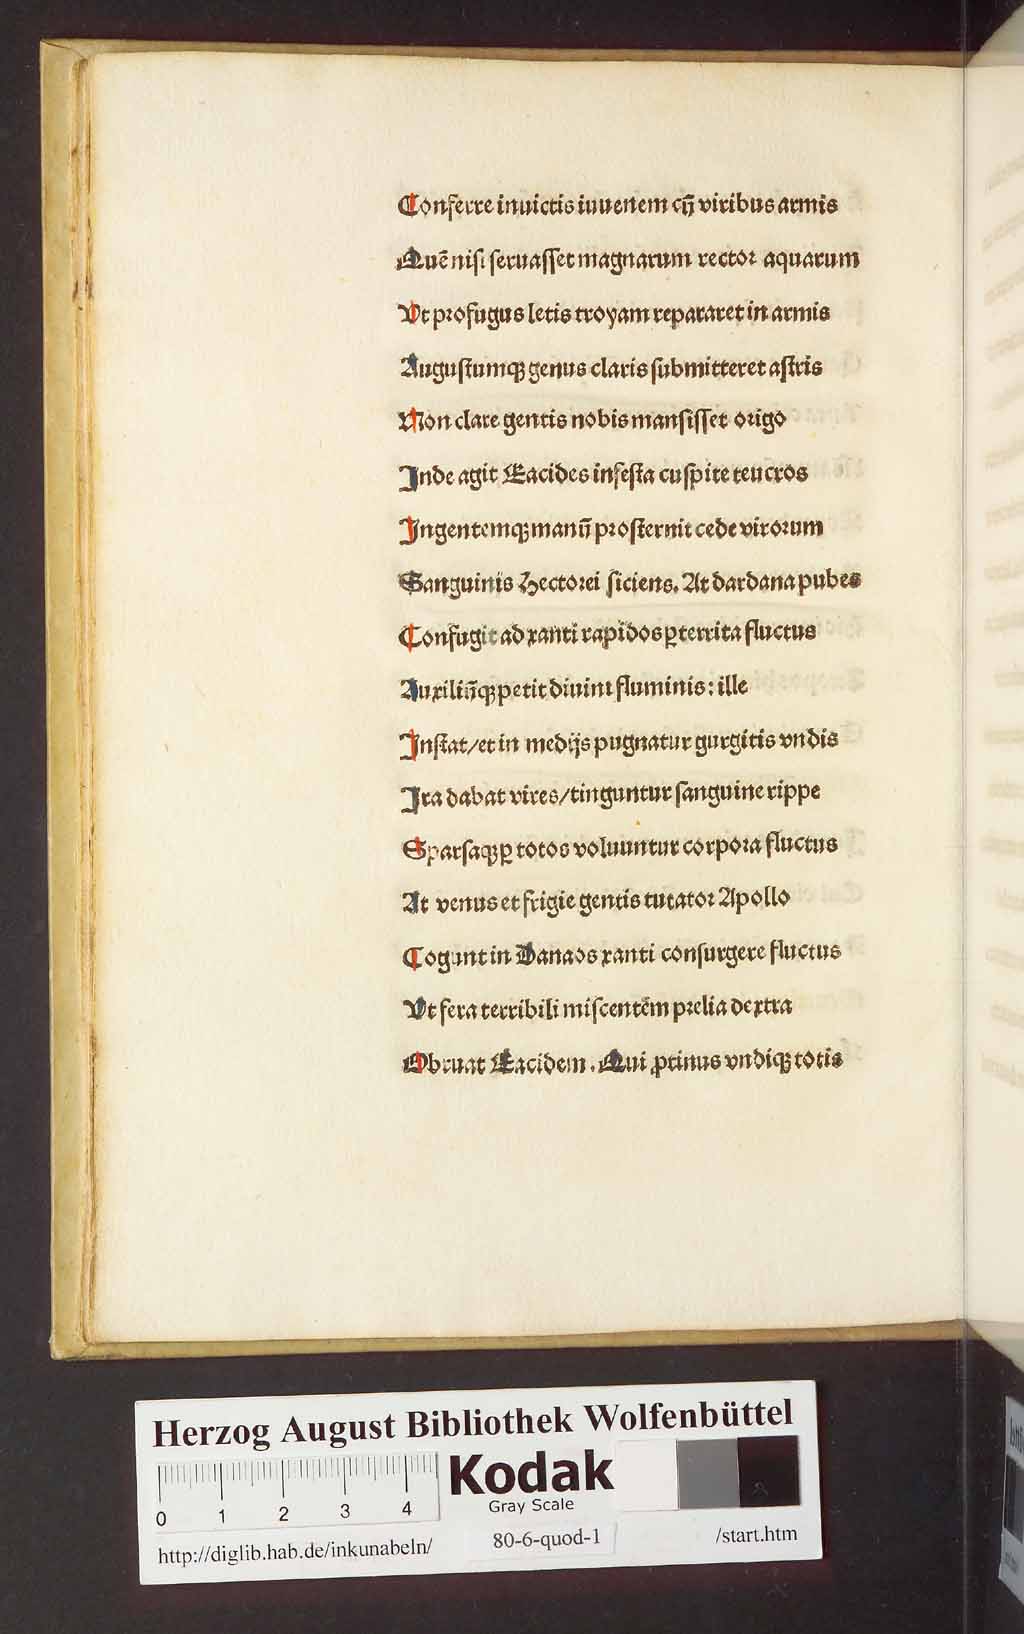 Conferre inuictis iuuenem cū viribus armis
Quē nisi seruasset magnarum rector aquarum
Vt profugus letis troyam repararet in armis
Augustumqꝫ genus claris submitteret astris
Non clare gentis nobis mansisset origo
Inde agit Eacides infesta cuspite teucros
Ingentemqꝫ manū prosternit cede virorum
Sanguinis Hectorei siciens. At dardana pubes
Confugit ad xanti rapidos ꝑterrita fluctus
Auxiliūqꝫ petit diuini fluminis: ille
Instat/et in medijs pugnatur gurgitis vndis
Ira dabat vires/tinguntur sanguine rippe
Sparsaqꝫ ꝑ totos voluuntur corpora fluctus
At venus et frigie gentis tutator Apollo
Cogunt in Danaos xanti consurgere fluctus
Vt fera terribili miscentēm prelia dextra
Obruat Eacidem. Qui ꝓtinus vndiqꝫ totis
Herzog August Bibliothek Wolfenbüttel
Kodak
Gray Scale
0 1 2 3 4
http://diglib.hab.de/inkunabeln/ 80-6-quod-1 /start.htm